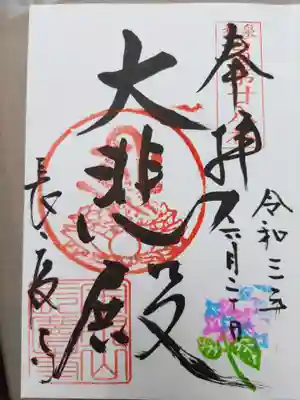 奉拝
令和三年
六月二十日
大悲殿
長慶寺